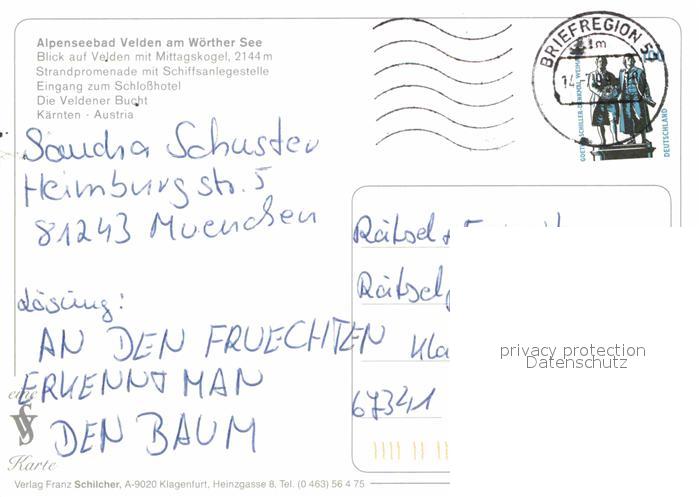 Alpenseebad Velden am Wörther See
Blick auf Velden mit Mittagskogel, 2144 m
Strandpromenade mit Schiffsanlegestelle
Eingang zum Schloßhotel
Die Veldener Bucht
Kärnten · Austria
BRIEFREGION 5
GOETHE-SCHILLER-DENKMAL WEIMAR
DEUTSCHLAND
Sandra Schuster
Heimburgstr. 5
81243 Muenchen
Rätsel
Lösung:
AN DEN FRUECHTEN
ERKENNT MAN
DEN BAUM
67341
privacy protection
Datenschutz
eine
Karte
Verlag Franz Schilcher, A-9020 Klagenfurt, Heinzgasse 8. Tel. (0 463) 56 4 75